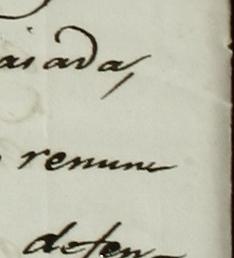 aiada,
renun
defen-